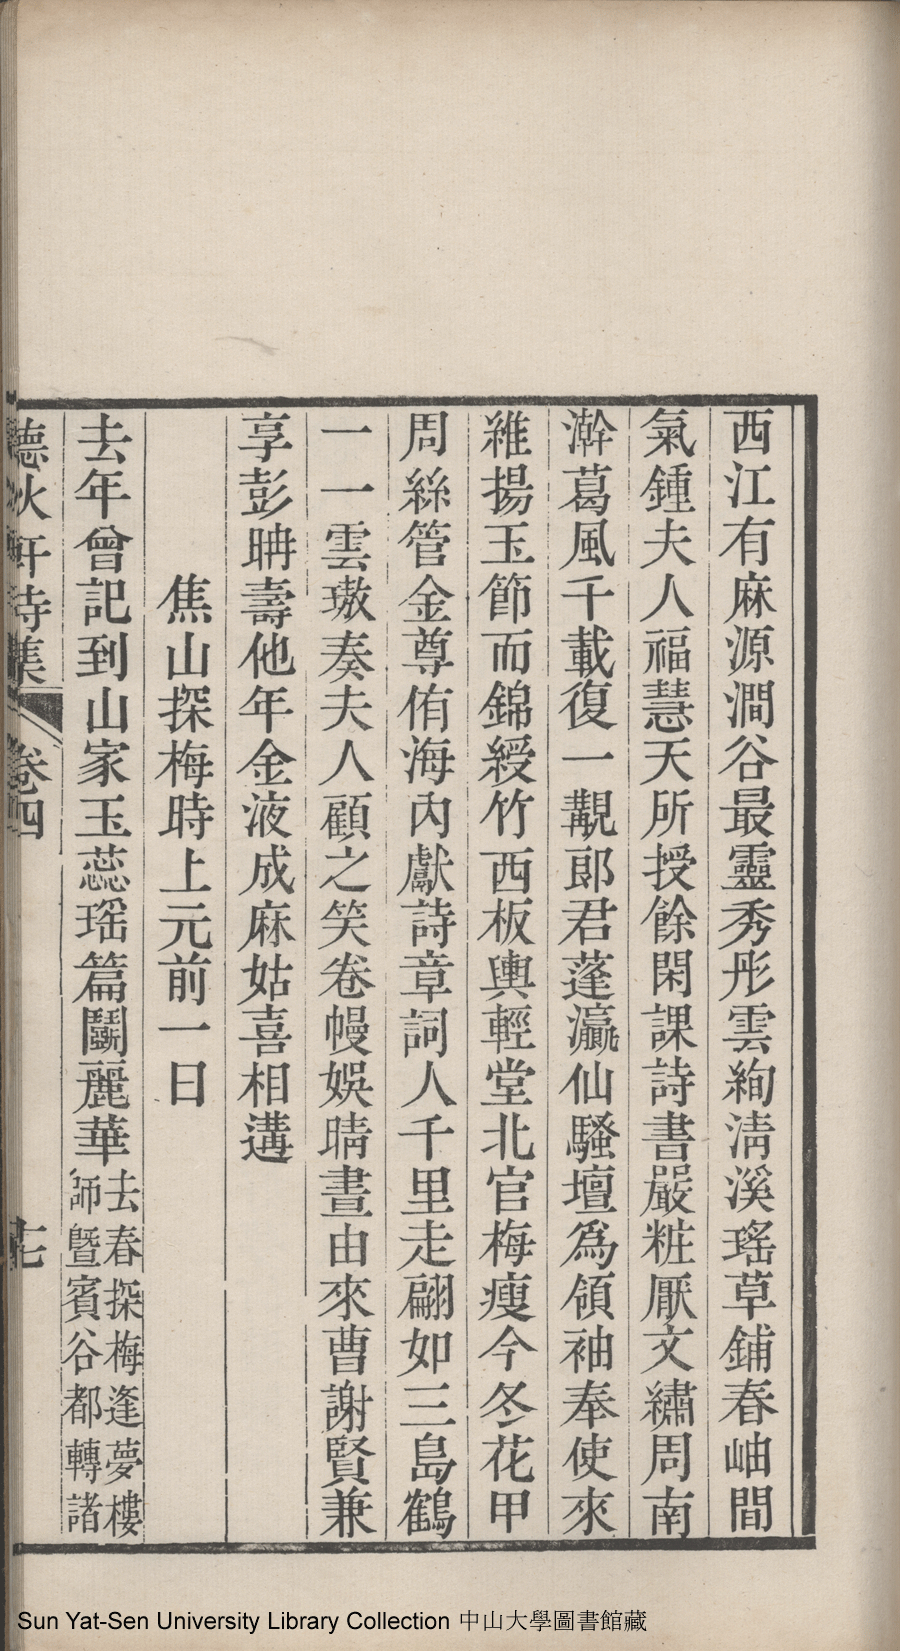 西江有麻源澗谷最靈秀彤雲絢淸溪瑤草鋪春岫間
氣鍾夫人福慧天所授餘閑課詩書嚴粧厭文繡周南
澣葛風千載復一覯郎君蓬瀛仙騷壇爲領袖奉使來
維揚玉節而錦綬竹西板輿輕堂北官梅瘦今冬花甲
周絲管金尊侑海內獻詩章詞人千里走翩如三島鶴
一一雲璈奏夫人顧之笑卷幔娛晴晝由來曹謝賢兼
享彭聃壽他年金液成麻姑喜相遘
焦山探梅時上元前一日
去年曾記到山家玉蕊瑶篇鬭麗華去春探梅逢夢樓
師曁賓谷都轉諸
德
軒詩集
卷四
十七
Sun Yat-Sen University Library Collection 中山大學圖書館藏